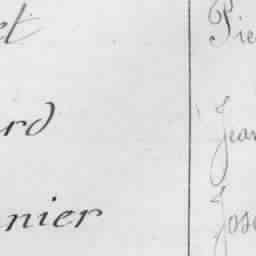 et Pie
rd Jean
nier Jose